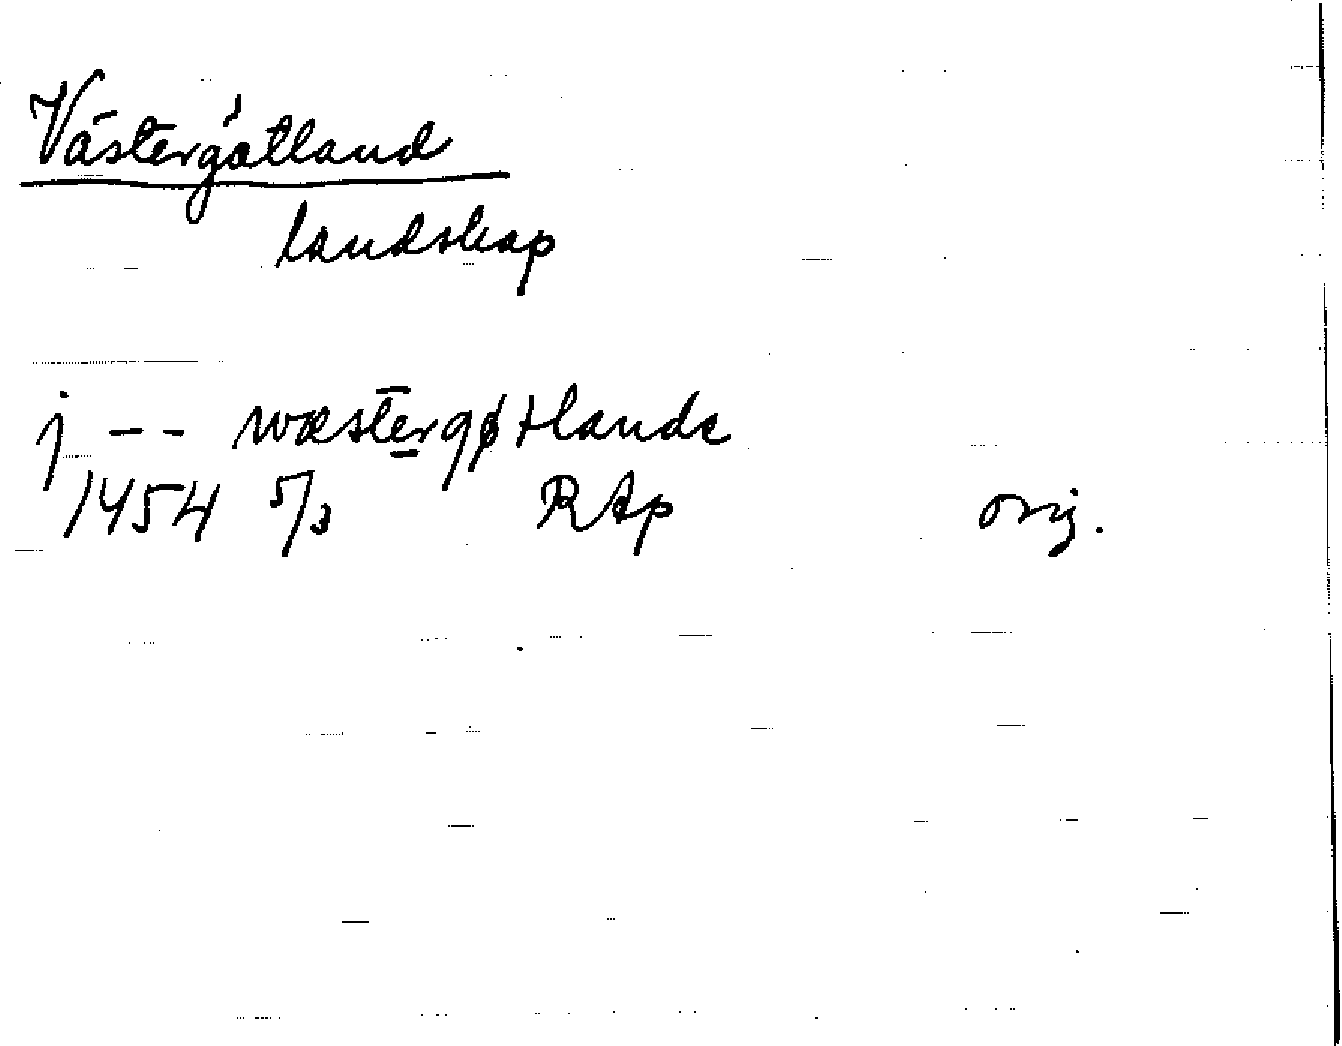 Västergötland
landskap
j -- wæstergøtlande
1454 5/3 RAp orig.